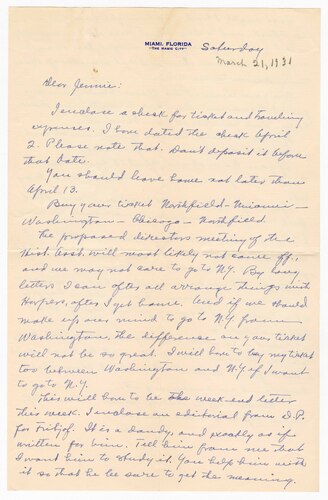 MIAMI, FLORIDA
"THE MAGIC CITY"
Saturday
March 21, 1931
Dear Jennie:
I enclose a check for ticket and traveling
expenses. I have dated the check April
2. Please note that. Don't deposit it before
that date.
You should leave home not later than
April 13.
Buy your ticket Northfield - Miami -
Washington - Chicago - Northfield
The proposed directors meeting of the
Hist. Asst. will most likely not come off,
and we may not care to go to N.Y. By long
letters I can after all arrange things with
Harpers, after I get home. And if we should
make up our mind to go to N.Y. from
Washington, the difference on your ticket
will not be so great. I will have to buy my ticket
too between Washington and N.Y. if I want
to go to N.Y.
This will have to be the week-end letter
this week. I enclose an editorial from D.P.
for Frithjof. It is a dandy, and exactly as if
written for him. Tell him from me that
I want him to study it. You help him with
it so that he be sure to get the meaning.